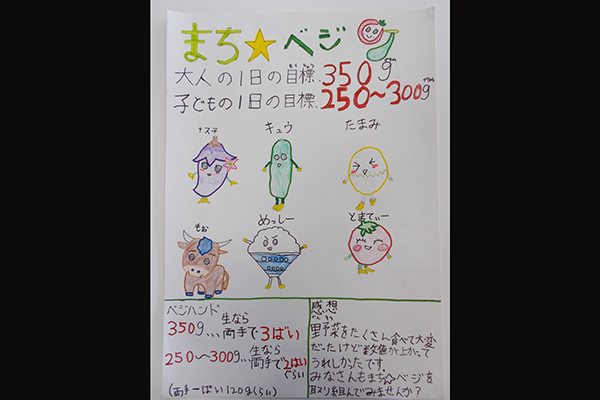 まち☆ベジ
大人の1日の目標、350g
もくひょう
グラム
子どもの1日の目標、250〜300g
グラム
ナス子
キュウ
たまみ
もお
めっしー
とまてぃー
ベジハンド
350g…生なら両手で3ばい
250〜300g…生なら両手で2はいぐらい
(両手一ぱい120gぐらい)
感想
かんそう
野菜をたくさん食べて大変
だったけど数値が上がって
うれしかったです。
みなさんもまち☆ベジを
取り組んでみませんか?